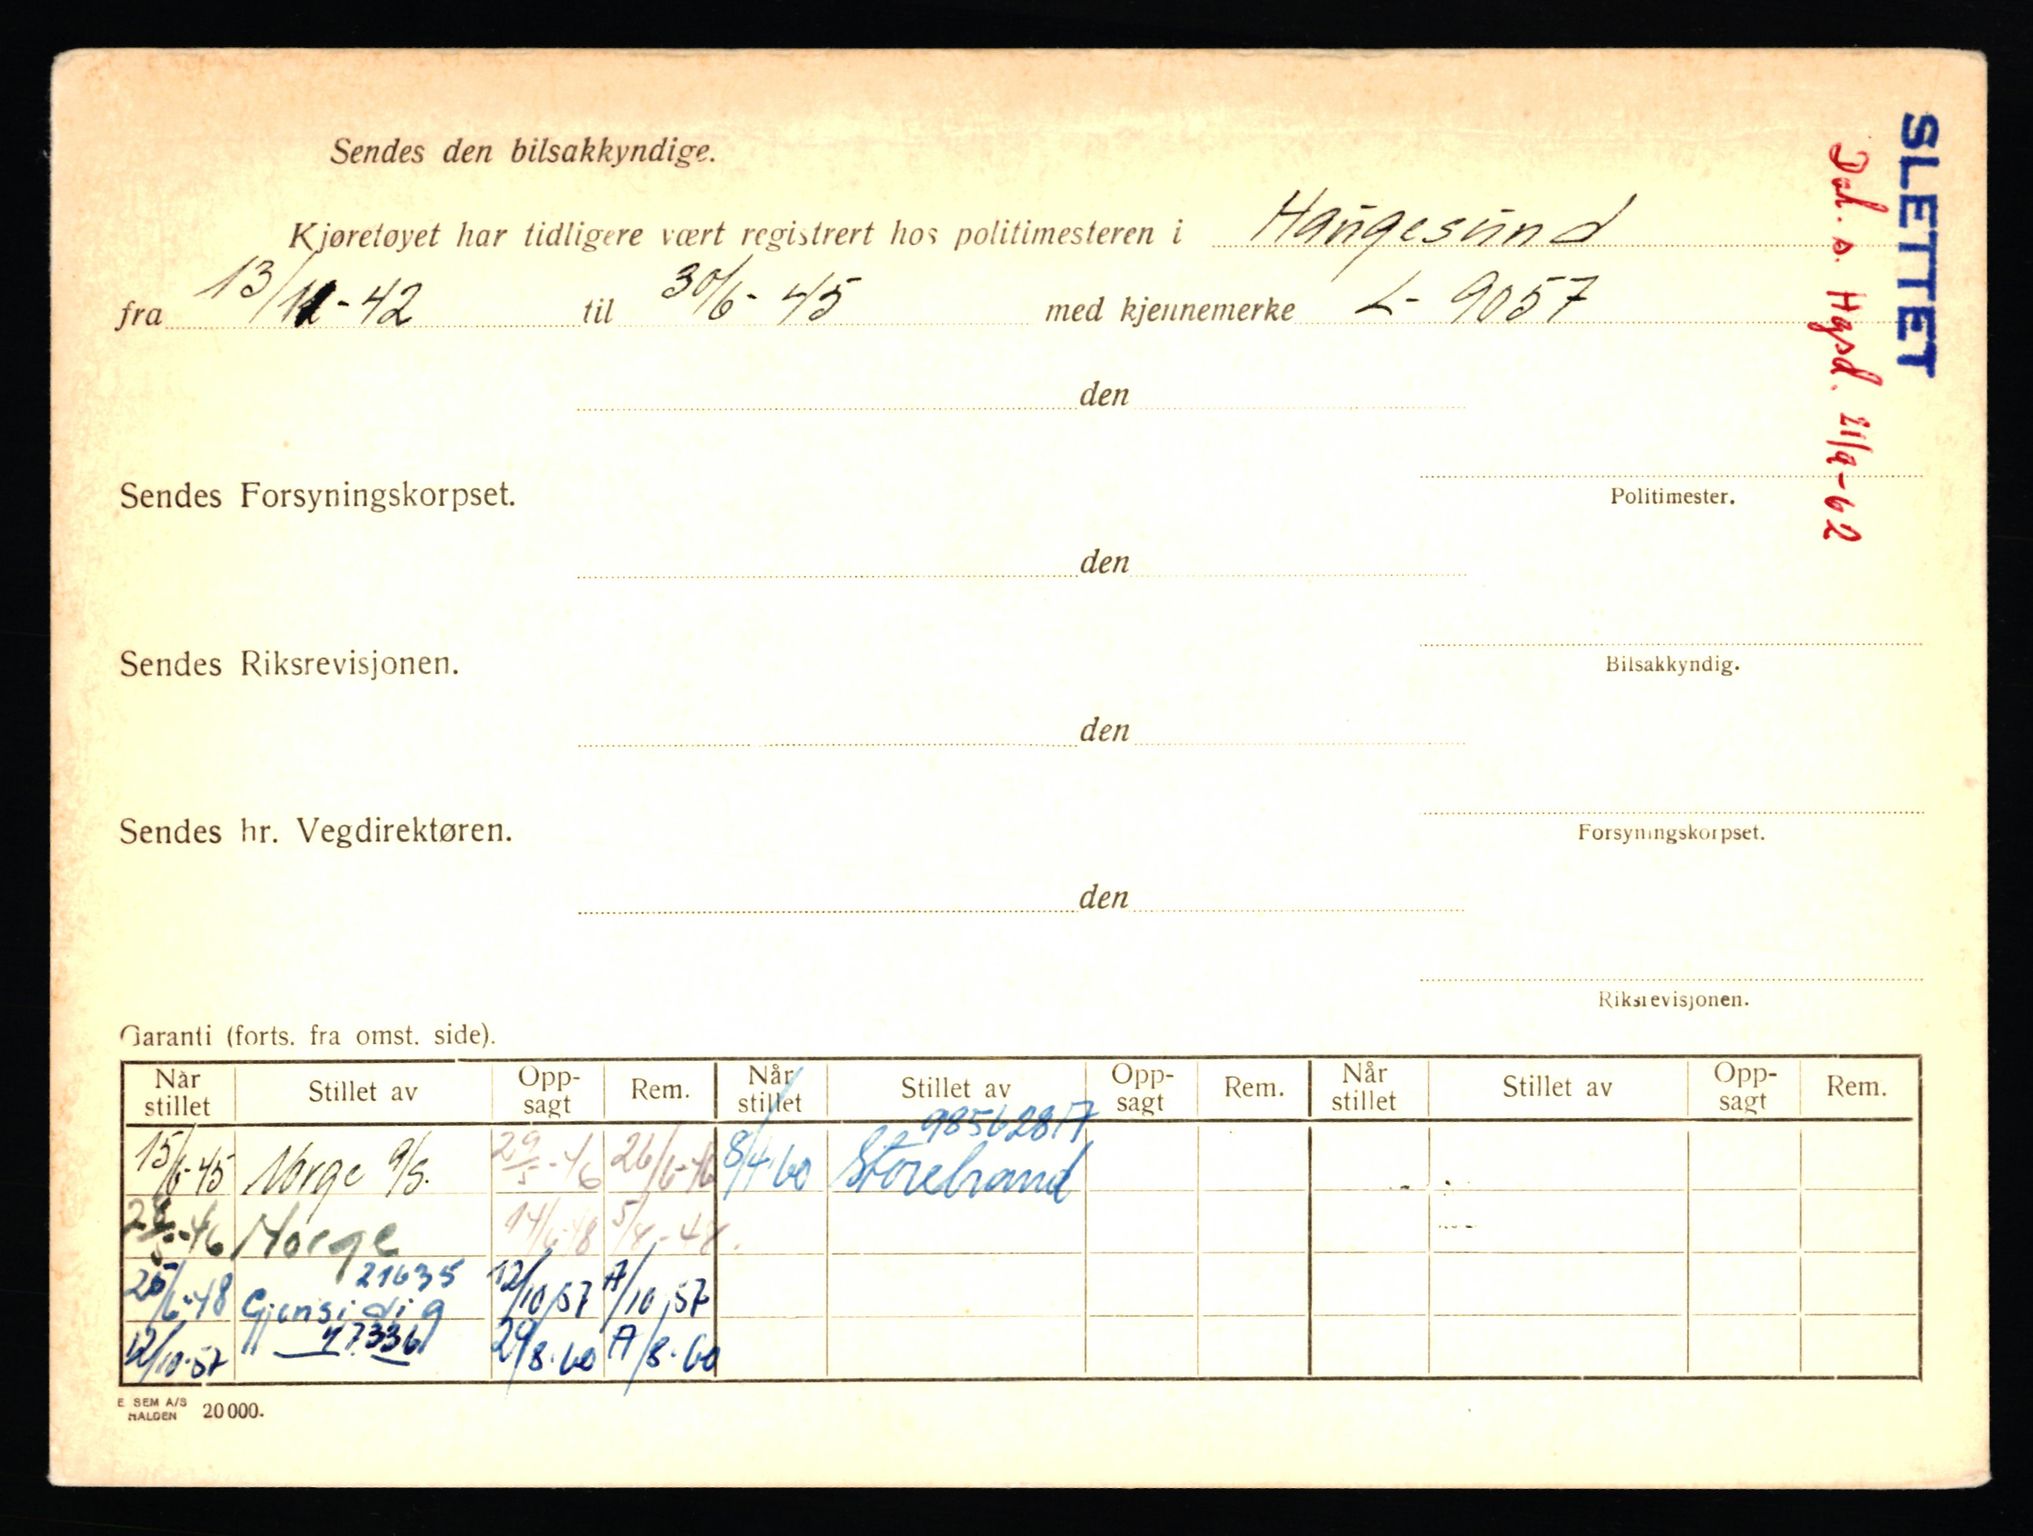 Sendes den bilsakkyndige.
Kjøretøyet har tidligere vært registrert hos politimesteren i Haugesund
fra 13/11-42 til 30/6-45 med kjennemerke L-9057
den
Sendes Forsyningskorpset.
Politimester.
den
Sendes Riksrevisjonen.
Bilsakkyndig.
den
Sendes hr. Vegdirektøren.
Forsyningskorpset.
den
Riksrevisjonen.
SLETTET
s. Hgsd. 21/9-62
Garanti (forts. fra omst. side).
Når stillet Stillet av Opp-sagt Rem. Når stillet Stillet av Opp-sagt Rem. Når stillet Stillet av Opp-sagt Rem.
15/6-45 Norge a/s. 29/5-46 26/6-46 8/4-60 Storebrand
28/5-46 Norge 14/6-48 5/8-48.
21635
25/6-48 Gjensidig 12/10,57 A/10,57
12/10-57 47336 29/8.60 A/8.60
E. SEM A/S
HALDEN 20000.